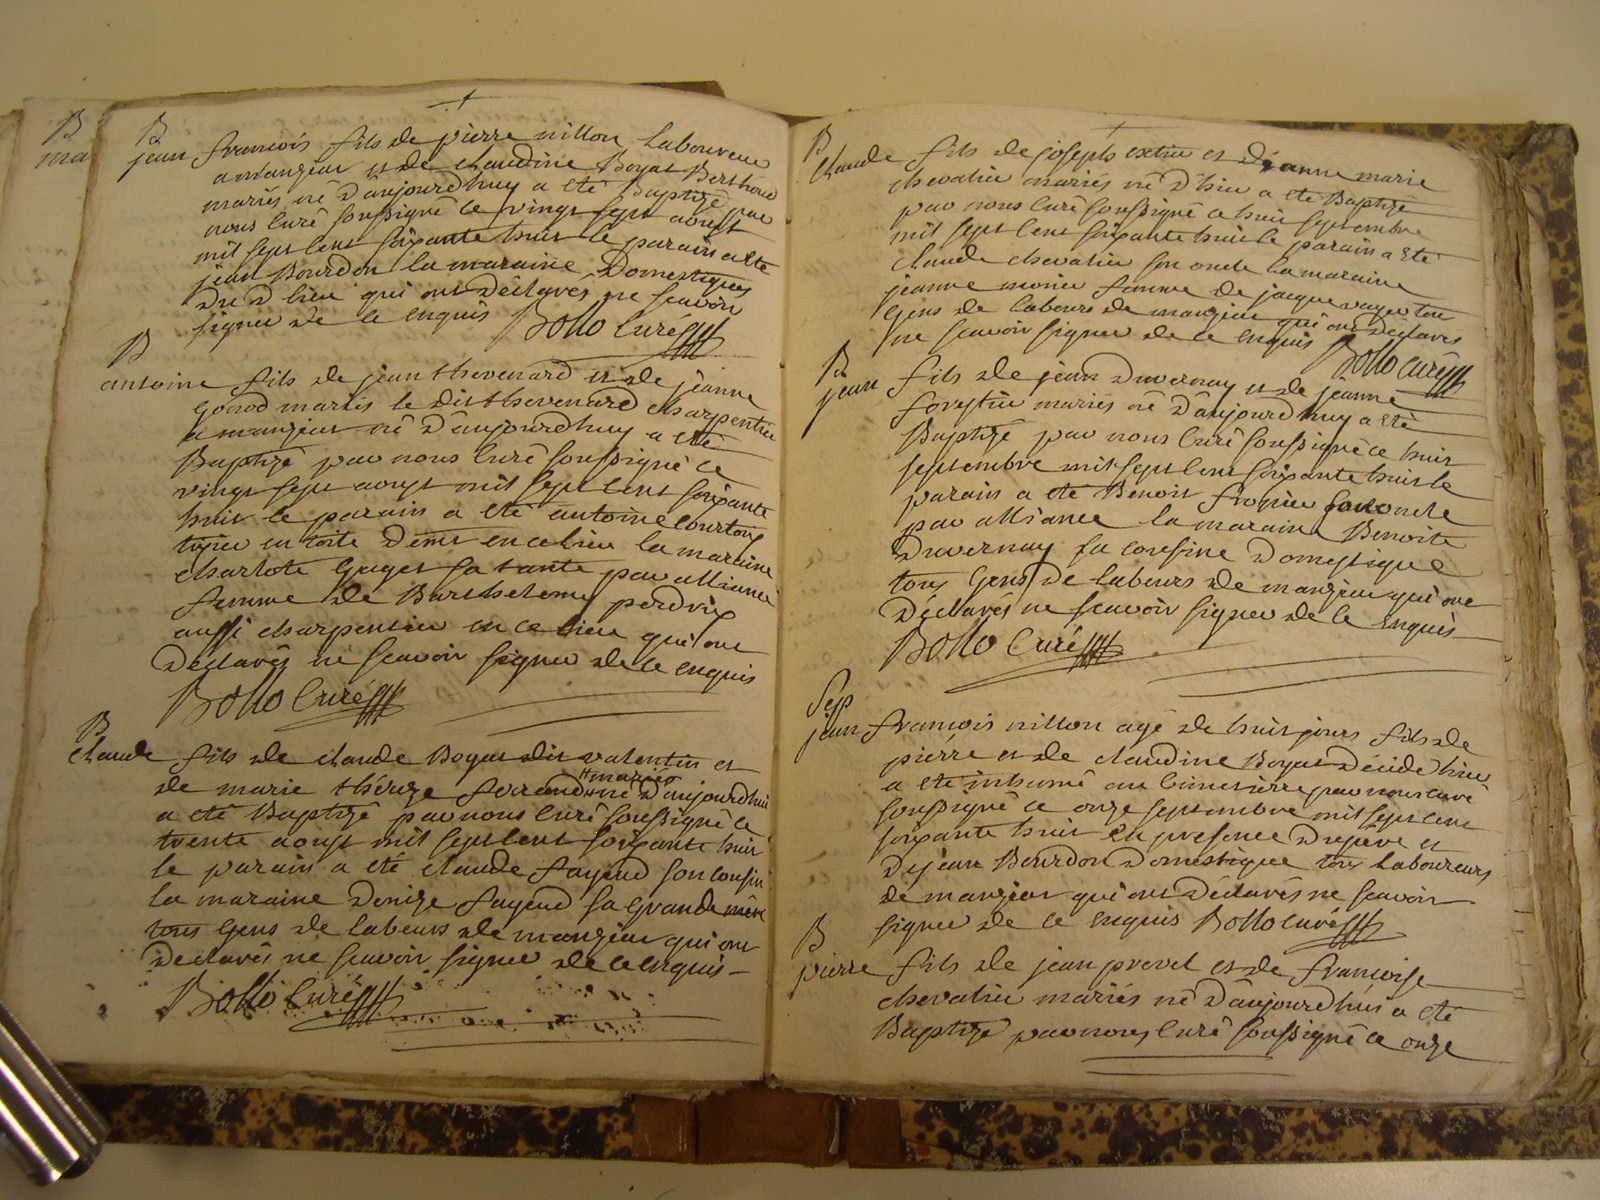 B
ma
B
jean francois fils de pierre nillon laboureur
a manzieu et de claudine Boyat Berthoud
mariés né d'aujourd'huy a eté Baptizé par
nous curé soussigné ce vingt sept aoust
mil sept cent soixante huit le parain a ete
jean Bourdon la maraine domestiques
du d lieu qui ont declarés ne scavoir
signer de ce enquis Bollo curé
B
antoine fils de jean thevenard et de jeanne
gonod mariés le dit thevenard charpentier
a manzieu né d'aujourd'huy a eté
Baptizé par nous curé soussigné ce
vingt sept aoust mil sept cent soixante
huit le parain a eté antoine courtois
en ce lieu la maraine
charlote guiget sa tante par alliance
femme de Barthelemy perdrix
aussi charpentier en ce lieu qui ont
déclarés ne scavoir signer de ce enquis
Bollo curé
B
claude fils de claude Boyat dit valentin et
de marie théreze ferrand mariés né d'aujourd'hui
a eté Baptizé par nous curé soussigné le
trente aoust mil sept cent soixante huit
le parain a eté claude fayend son cousin
la maraine denize fayend sa grande mère
tous gens de labeurs de manzieu qui ont
declarés ne scavoir signer de ce enquis
Bollo curé
B
claude fils de joseph et de jeanne marie
chevalier mariés né d'hier a eté Baptizé
par nous curé soussigné ce huit septembre
mil sept cent soixante huit le parain a eté
claude chevalier son oncle la maraine
jeanne monier femme de jacque vayer tous
gens de labeurs de manzieu qui ont déclarés
ne scavoir signer de ce enquis Bollo curé
B
jean fils de jean duvernay et de jeanne
forestier mariés né d'aujourd'huy a eté
Baptizé par nous curé soussigné ce huit
septembre mil sept cent soixante huit le
parain a eté Benoit son oncle
par alliance la maraine Benoite
duvernay sa cousine domestique
tous gens de labeurs de manzieu qui ont
déclarés ne scavoir signer de ce enquis
Bollo curé
Sep
jean francois nillon agé de huit jours fils de
pierre et de claudine Boyat décédé hier
a eté inhumé au cimetierre par nous curé
soussigné ce onze septembre mil sept cent
soixante huit en presence du père et
de jean Bourdon domestique tous laboureurs
de manzieu qui ont déclarés ne scavoir
signer de ce enquis Bollo curé
B
pierre fils de jean provet et de francoise
chevalier mariés né d'aujourd'hui a eté
Baptizé par nous curé soussigné ce onze